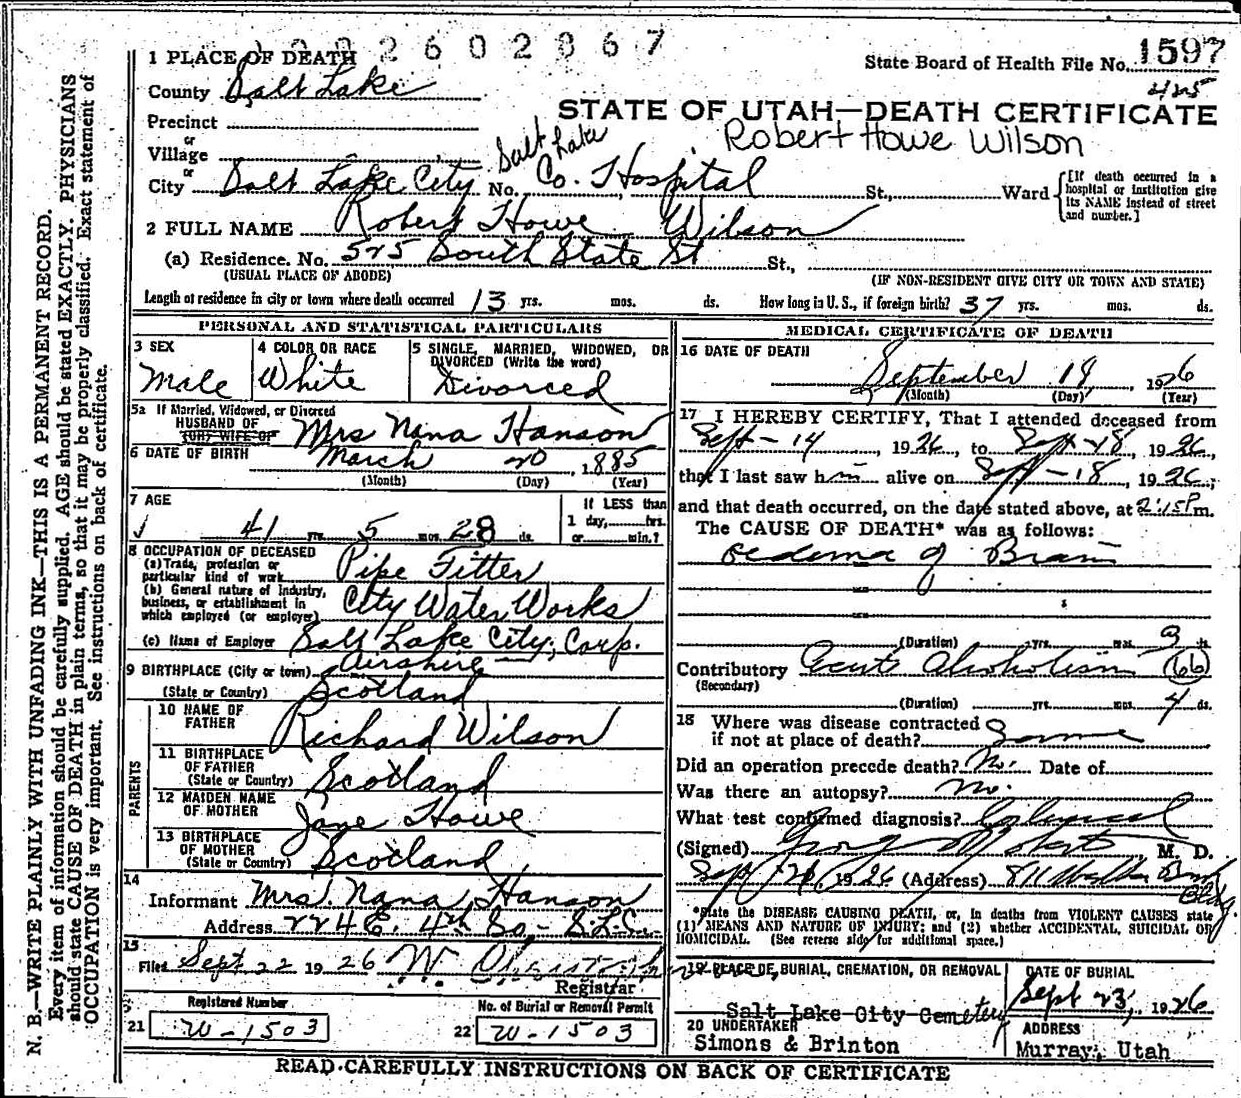 2602867
1 PLACE OF DEATH
State Board of Health File No. 1597
425
County Salt Lake
STATE OF UTAH—DEATH CERTIFICATE
Precinct
Robert Howe Wilson
or
Village
or
City Salt Lake City No. Salt Lake Co. Hospital St., Ward
[If death occurred in a hospital or institution give its NAME instead of street and number.]
2 FULL NAME Robert Howe Wilson
(a) Residence. No. 525 South State St St.,
(USUAL PLACE OF ABODE) (IF NON-RESIDENT GIVE CITY OR TOWN AND STATE)
Length of residence in city or town where death occurred 13 yrs. mos. ds. How long in U. S., if foreign birth? 37 yrs. mos. ds.
PERSONAL AND STATISTICAL PARTICULARS
3 SEX
Male
4 COLOR OR RACE
White
5 SINGLE, MARRIED, WIDOWED, OR
DIVORCED (Write the word)
Divorced
5a If Married, Widowed, or Divorced
HUSBAND OF
(OR) WIFE OF
Mrs Nana Hanson
6 DATE OF BIRTH March 20, 1885
(Month) (Day) (Year)
7 AGE
41 yrs. 5 mos. 28 ds.
If LESS than
1 day, hrs.
or min.?
8 OCCUPATION OF DECEASED
(a) Trade, profession or
particular kind of work Pipe Fitter
(b) General nature of Industry,
business, or establishment in
which employed (or employer) City Water Works
(c) Name of Employer Salt Lake City, Corp.
9 BIRTHPLACE (City or town) Airshire
(State or Country) Scotland
PARENTS
10 NAME OF
FATHER Richard Wilson
11 BIRTHPLACE
OF FATHER
(State or Country) Scotland
12 MAIDEN NAME
OF MOTHER Jane Howe
13 BIRTHPLACE
OF MOTHER
(State or Country) Scotland
14
Informant Mrs. Nana Hanson
Address 224 E. 4th So,- S.L.C.
15
Filed Sept 22 1926 W.
Registrar
Registered Number
21 W-1503
No. of Burial or Removal Permit
22 W-1503
MEDICAL CERTIFICATE OF DEATH
16 DATE OF DEATH
September 18, 1926
(Month) (Day) (Year)
17 I HEREBY CERTIFY, That I attended deceased from
Sept-14, 1926, to Sept-18, 1926,
that I last saw him alive on Sept-18, 1926,;
and that death occurred, on the date stated above, at 2:15P m.
The CAUSE OF DEATH* was as follows:
Oedema of Brain
(Duration) yrs. mos. 3 ds.
Contributory Acute Alcoholism (66)
(Secondary)
(Duration) yrs. mos. 4 ds.
18 Where was disease contracted
if not at place of death? Same
Did an operation precede death? No. Date of
Was there an autopsy? No.
What test confirmed diagnosis?
(Signed) M. D.
Sept 1926 (Address) 811 Walker Bank Bldg.
*State the DISEASE CAUSING DEATH, or, in deaths from VIOLENT CAUSES state
(1) MEANS AND NATURE OF INJURY; and (2) whether ACCIDENTAL, SUICIDAL OR
HOMICIDAL. (See reverse side for additional space.)
19 PLACE OF BURIAL, CREMATION, OR REMOVAL
Salt Lake City Cemetery
DATE OF BURIAL
Sept 23, 1926
20 UNDERTAKER
Simons & Brinton
ADDRESS
Murray, Utah
READ CAREFULLY INSTRUCTIONS ON BACK OF CERTIFICATE
N. B.—WRITE PLAINLY WITH UNFADING INK—THIS IS A PERMANENT RECORD.
Every item of information should be carefully supplied. AGE should be stated EXACTLY. PHYSICIANS
should state CAUSE OF DEATH in plain terms, so that it may be properly classified. Exact statement of
OCCUPATION is very important. See instructions on back of certificate.